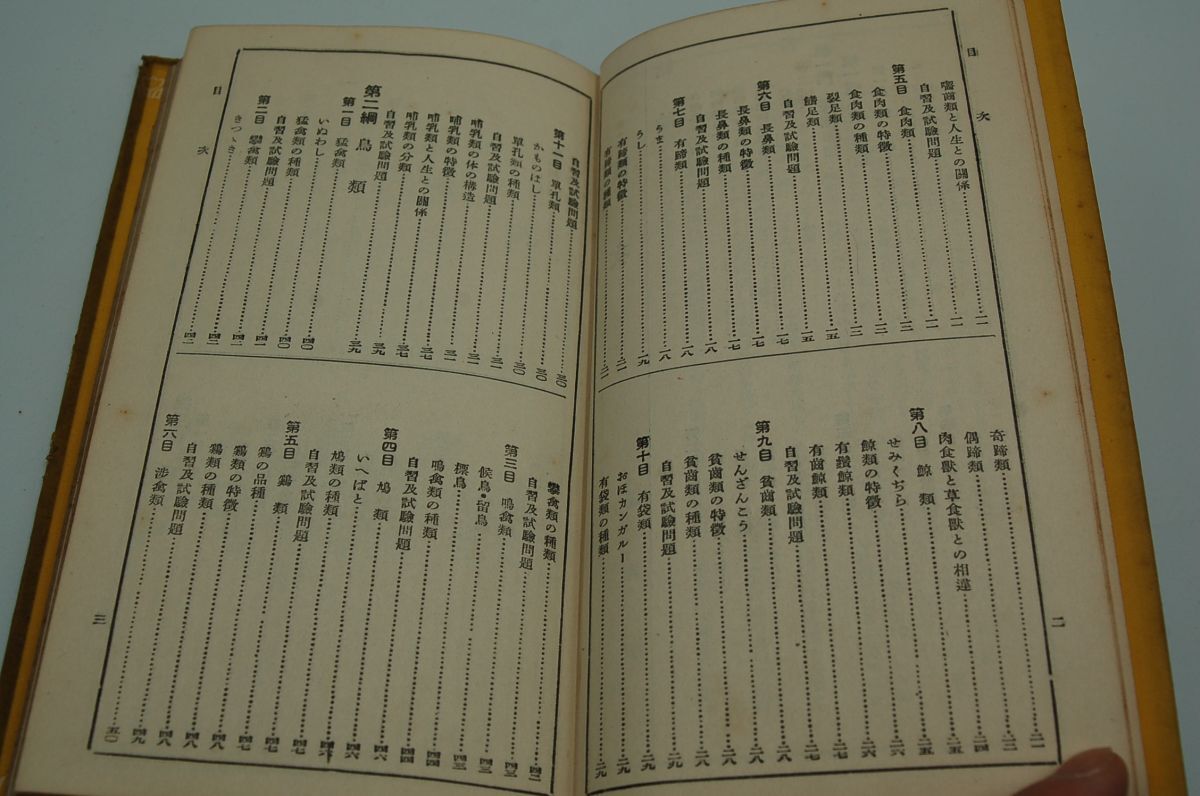 目次
囓齒類と人生との關係……一一
自習及試驗問題……一一
第五目 食肉類……一二
食肉類の特徴……一二
食肉類の種類……一三
裂足類……一五
鰭足類……一五
自習及試驗問題……一七
第六目 長鼻類……一七
長鼻類の特徴……一七
長鼻類の種類……一七
自習及試驗問題……一八
第七目 有蹄類……一八
うま……一八
うし……一九
有蹄類の特徴……二一
有蹄類の種類……二一
奇蹄類……二一
偶蹄類……二三
肉食獸と草食獸との相違……二四
第八目 鯨類……二五
せみくぢら……二五
鯨類の特徴……二六
有鬚鯨類……二六
有齒鯨類……二七
自習及試驗問題……二七
第九目 貧齒類……二八
せんざんこう……二八
貧齒類の特徴……二八
貧齒類の種類……二八
自習及試驗問題……二九
第十目 有袋類……二九
おほカンガルー……二九
有袋類の種類……二九
二
自習及試驗問題……三〇
第十一目 單孔類……三〇
かものはし……三〇
單孔類の種類……三一
自習及試驗問題……三一
哺乳類の体の構造……三一
哺乳類の特徴……三一
哺乳類と人生との關係……三七
哺乳類の分類……三七
自習及試驗問題……三九
第二綱 鳥類……三九
第一目 猛禽類
いぬわし……四〇
猛禽類の種類……四〇
自習及試驗問題……四一
第二目 攀禽類……四二
きつゝき……四二
攀禽類の種類……四二
自習及試驗問題……四三
第三目 鳴禽類……四三
候鳥・留鳥……四三
標鳥……四三
鳴禽類の種類……四四
自習及試驗問題……四四
第四目 鳩類……四六
いへばと……四六
鳩類の種類……四六
自習及試驗問題……四七
第五目 鷄類……四七
鷄の品種……四七
鷄類の特徴……四八
鷄類の種類……四八
自習及試驗問題……四九
第六目 渉禽類……五〇
目次
三